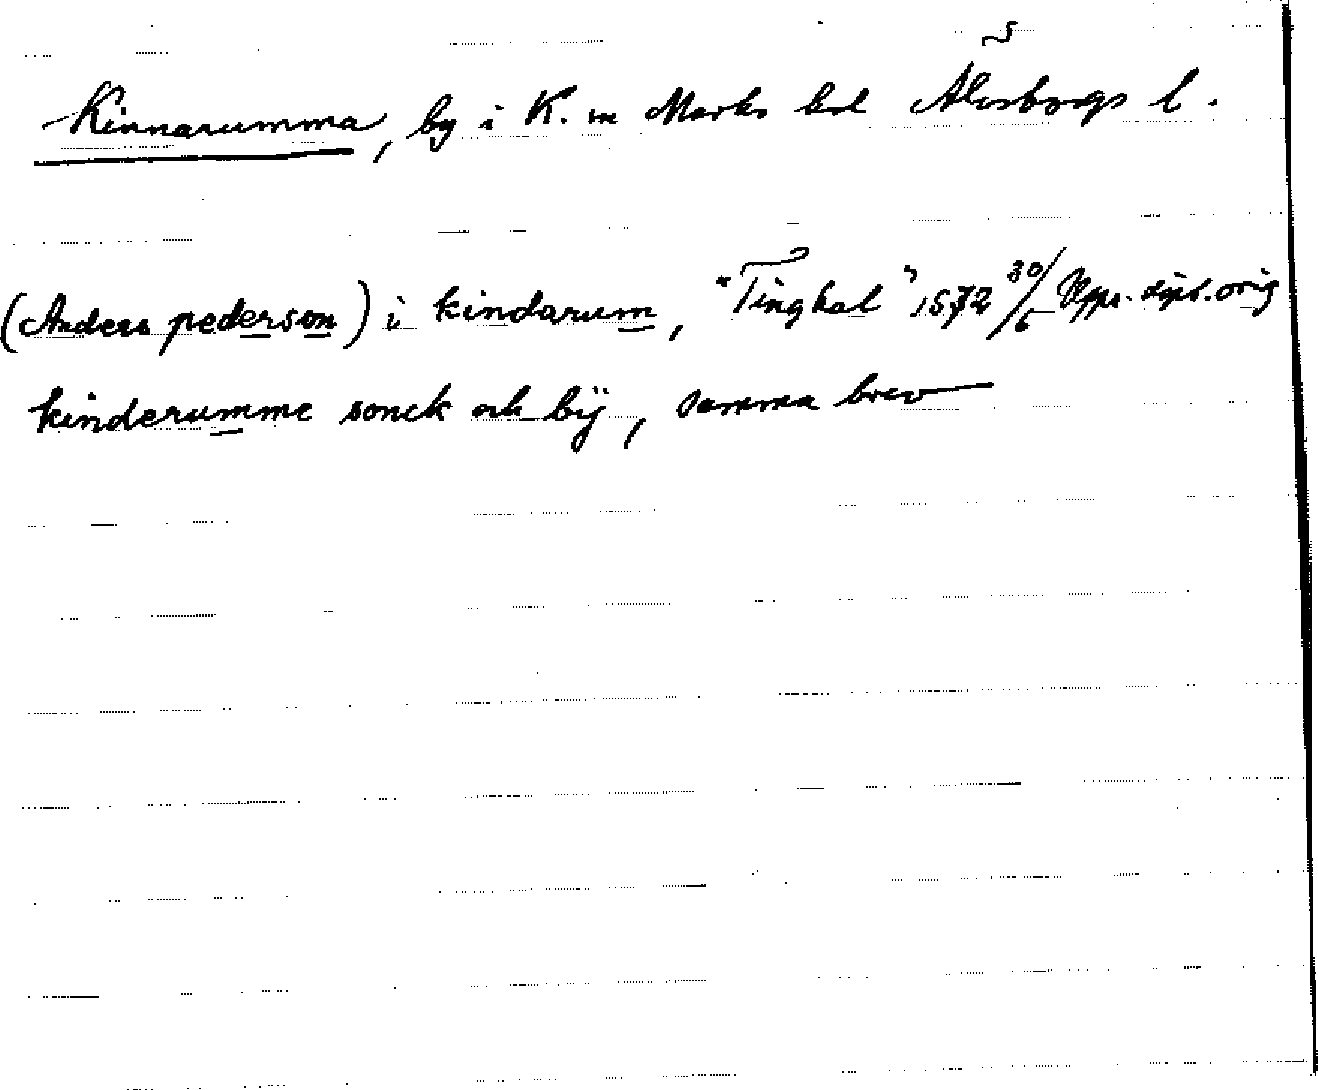 Kinnarumma, by i K. m Marks hd Älvsborgs l.
(Anders pederson) i kindarum, "Tinghal" 1572 30/6 Upps. dipl. orig
kinderumme sonck och bÿ, samma brev